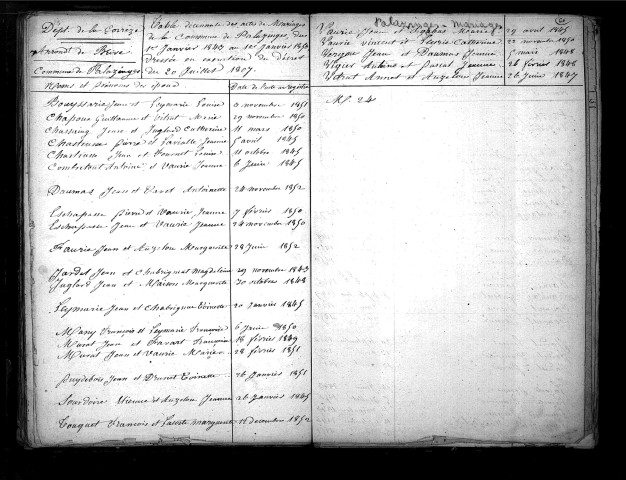 Dépt. de la Corrèze
Arrondt de Brive
Commune de Palazinges
Table décennale des actes de Mariages
de la Commune de Palazinges, du
1er Janvier 1843 au 1er Janvier 1853
Dressée en exécution du Décret
du 20 Juillet 1807.
Noms et prénoms des époux Date de l'acte au registre
Bouyssarie Jean et Leymarie Louise 3 novembre 1851
Chapoux Guillaume et Vitrat Marie 29 novembre 1850
Chassaing Jean et Juglard Catherine 11 mars 1850
Chastrusse Pierre et Lavialle Jeanne 5 avril 1845
Chastrusse Jean et Tournet Louise 11 octobre 1845
Combastant Antoine et Vaurie Jeanne 6 Juin 1845
Daumas Jean et Antoinette 24 novembre 1852
Eschapasse Pierre et Vaurie Jeanne 7 février 1850
Eschapasse Jean et Vaurie Jeanne 24 novembre 1850
Faurie Jean et Auzelou Marguerite 28 Juin 1852
Jardel Jean et Chabrignat Magdeleine 29 novembre 1843
Juglard Jean et Maison Marguerite 20 octobre 1848
Leymarie Jean et Chabrignac Toinette 20 Janvier 1845
Many François et Leymarie Françoise 6 Juin 1850
Murat Jean et Françoise 18 février 1849
Murat Jean et Vaurie Marie 28 février 1851
Puydebois Jean et Toinette 26 Janvier 1851
Sourdoire Etienne et Auzelou Jeanne 26 Janvier 1845
Touquet François et Marguerite 16 décembre 1852
Palazinges - Mariages
Vaurie Jean et Marie 29 avril 1845
Vaurie Vincent et Fleurie Catherine 22 novembre 1850
Jean et Daumas Jeanne 5 mars 1848
Antoine et Pascal Jeanne 26 février 1848
Vitrat Annet et Auzelou Jeanne 26 Juin 1847
M. 24